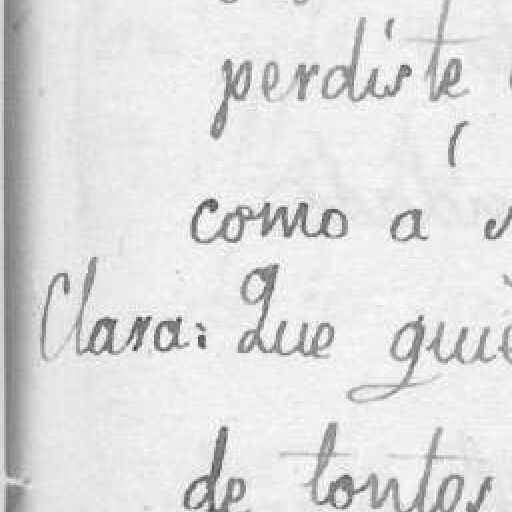 perdiste
como a
Clara: Que quie
de tontos